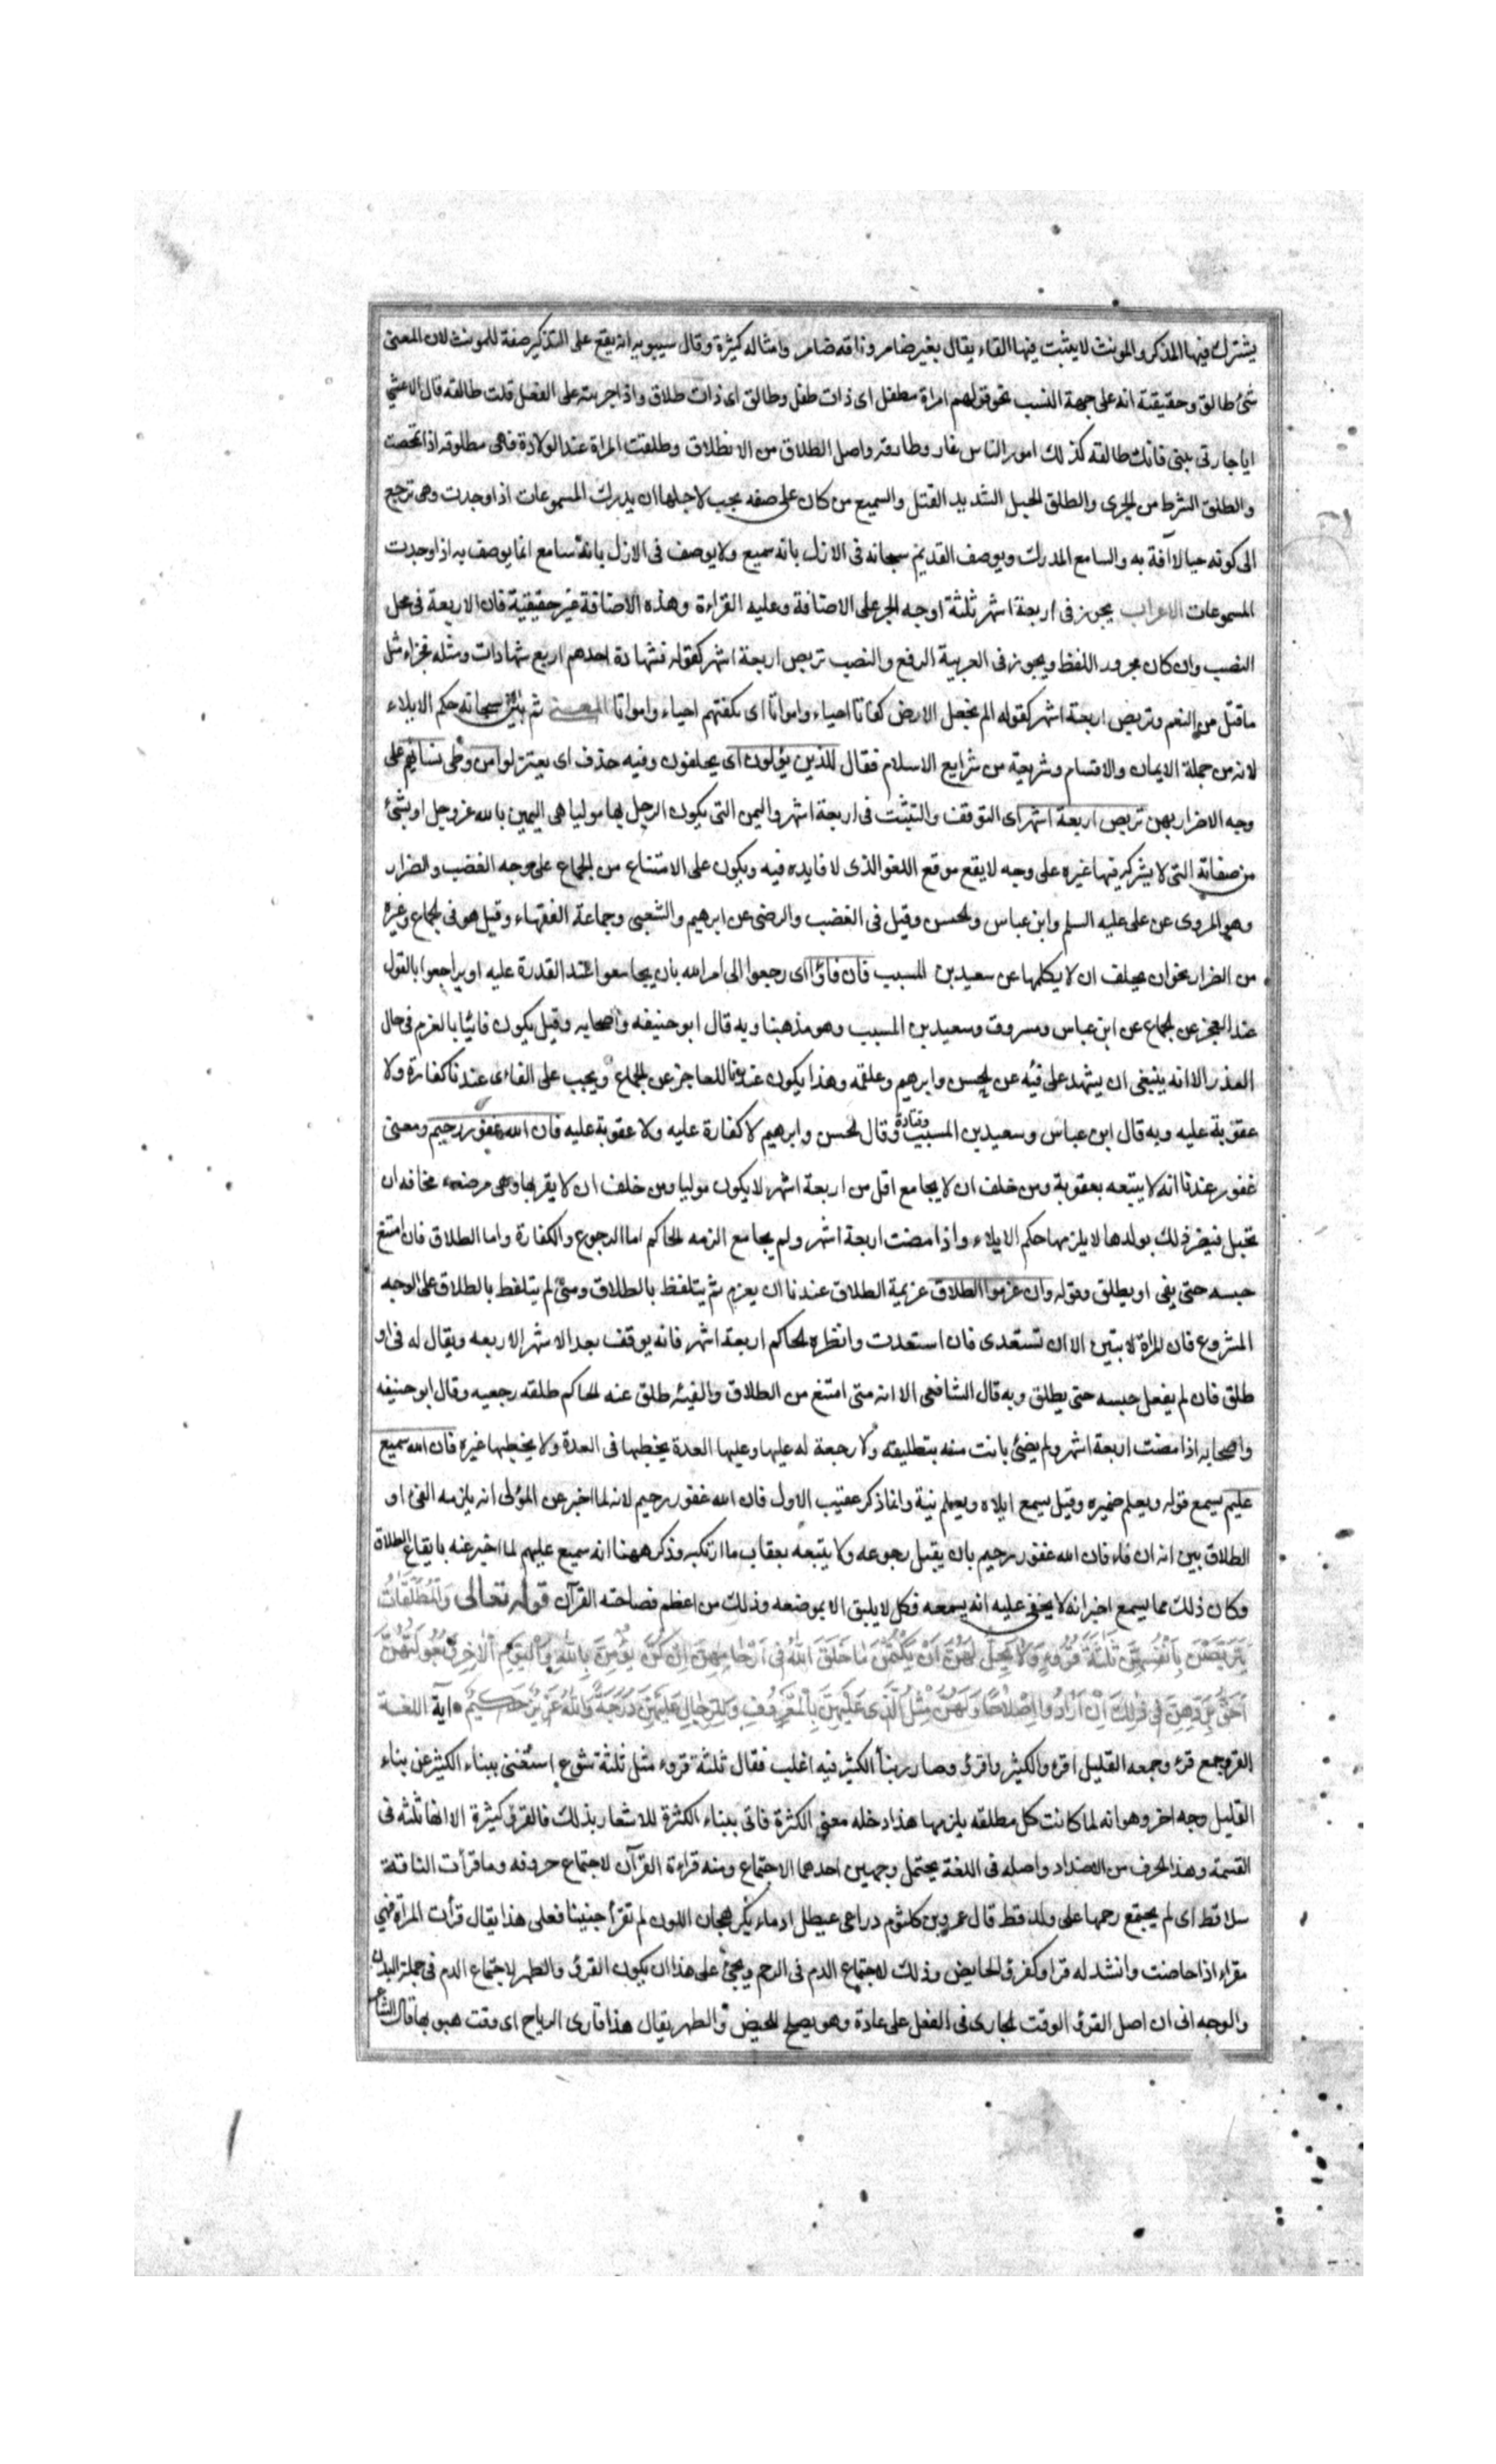 يشترك فيها المذكر والمونث لا يثبت فيها الهاء يقال بعير ضامر وناقه ضامر وامثاله كثيرة وقال سيبويه انه يقع على التذكير صفة للمونث لان المعنى
شئ طالق وحقيقته انه على جهة النسب نحو قولهم امراة مطفل اى ذات طفل وطالق اى ذات طلاق واذا اجريته على الفعل قلت طالقه قال الاعشى
ايا جارتى بينى فانك طالقه كذلك امور الناس غاد وطارقه واصل الطلاق من الانطلاق وطلقت المراة عند الولادة فهى مطلوقه اذا تمخضت
والطلق الشوط من الجرى والطلق الحبل الشديد الفتل والسميع من كان على صفه يجب لاجلها ان يدرك المسموعات اذا وجدت وهى ترجع
الى كونه حيا لا آفة به والسامع المدرك ويوصف القديم سبحانه فى الازل بانه سميع ولا يوصف فى الازل بانه سامع انما يوصف به اذا وجدت
المسموعات الاعراب يجوز فى اربعة اشهر ثلثة اوجه الجر على الاضافة وعليه القراءة وهذه الاضافة غير حقيقية فان الاربعة فى محل
النصب وان كان مجرور اللفظ ويجوز فى العربية الرفع والنصب تربص اربعة اشهر كقوله فشهادة احدهم اربع شهادات ومثله فجزاء مثل
ما قتل من النعم وتربص اربعة اشهر كقوله الم نجعل الارض كفاتا احياء وامواتا اى نكفتهم احياء وامواتا المعنى ثم بين سبحانه حكم الايلاء
لانه من جملة الايمان والاقسام وشريعة من شرايع الاسلام فقال للذين يؤلون اى يحلفون وفيه حذف اى يعتزلوا من وطى نسائهم على
وجه الاضرار بهن تربص اربعة اشهر اى التوقف والتثبت فى اربعة اشهر واليمن التى يكون الرجل بها موليا هى اليمين بالله عز وجل او بشئ
من صفاته التى لا يشركه فيها غيره على وجه لا يقع موقع اللغو الذى لا فايده فيه ويكون على الامتناع من الجماع على وجه الغضب والضرار
وهو المروى عن على عليه السلم وابن عباس والحسن وقيل فى الغضب والرضى عن ابرهيم والشعبى وجماعة الفقهاء وقيل هو فى الجماع وغيره
من الضرار نحو ان يحلف ان لا يكلمها عن سعيد بن المسيب فان فاؤا اى رجعوا الى امر الله بان يجامعوا عند القدرة عليه او يراجعوا بالقول
عند العجز عن الجماع عن ابن عباس ومسروق وسعيد بن المسيب وهو مذهبنا وبه قال ابو حنيفه واصحابه وقيل يكون فائيا بالعزم فى حال
العذر الا انه ينبغى ان يشهد على فيئه عن الحسن وابرهيم وعلقمه وهذا يكون عندنا للعاجز عن الجماع ويجب على الفاءى عندنا كفارة ولا
عقوبة عليه وبه قال ابن عباس وسعيد بن المسيب وقتادة وقال الحسن وابرهيم لا كفارة عليه ولا عقوبة عليه فان الله غفور رحيم ومعنى
غفور عندنا انه لا يتبعه بعقوبة ومن خلف ان لا يجامع اقل من اربعة اشهر لا يكون موليا ومن خلف ان لا يقربها وهى مرضعه مخافه ان
تحبل فيضر ذلك بولدها لا يلزمها حكم الايلاء واذا مضت اربعة اشهر ولم يجامع الزمه الحاكم اما الرجوع والكفارة واما الطلاق فان امتنع
حبسه حتى يفى او يطلق وقوله وان عزموا الطلاق عزيمة الطلاق عندنا ان يعزم ثم يتلفظ بالطلاق ومتى لم يتلفظ بالطلاق على الوجه
المشروع فان المراة لا تبين الا ان تستعدى فان استعدت وانظره الحاكم اربعة اشهر فانه يوقف بعد الاشهر الاربعه ويقال له فى او
طلق فان لم يفعل حبسه حتى يطلق وبه قال الشافعى الا انه متى امتنع من الطلاق والفيئه طلق عنه الحاكم طلقه رجعيه وقال ابو حنيفه
واصحابه اذا مضت اربعة اشهر ولم يفئ بانت منه بتطليقه ولا رجعة له عليها وعليها العدة يخطبها فى العدة ولا يخطبها غيره فان الله سميع
عليم يسمع قوله ويعلم ضميره وقيل يسمع ايلاه ويعلم نية وانما ذكر عقيب الاول فان الله غفور رحيم لانه لما اخبر عن المؤلى انه يلزمه الفئ او
الطلاق بين انه ان فاء فان الله غفور رحيم بان يقبل رجوعه ولا يتبعه بعقاب ما ارتكبه وذكر ههنا انه سميع عليم لما اخبر عنه بايقاع الطلاق
وكان ذلك مما يسمع اخبر انه لا يخفى عليه انه يسمعه فكل لا يليق الا بموضعه وذلك من اعظم فصاحته القرآن قوله تعالى وَالْمُطَلَّقَاتُ
يَتَرَبَّصْنَ بِاَنْفُسِهِنَّ ثَلٰثَةَ قُرُوءٍ وَلَا يَحِلُّ لَهُنَّ اَنْ يَكْتُمْنَ مَا خَلَقَ اللّٰهُ فِى اَرْحَامِهِنَّ اِنْ كُنَّ يُؤْمِنَّ بِاللّٰهِ وَالْيَوْمِ الْاٰخِرِ وَبُعُولَتُهُنَّ
اَحَقُّ بِرَدِّهِنَّ فِى ذٰلِكَ اِنْ اَرَادُوا اِصْلَاحًا وَلَهُنَّ مِثْلُ الَّذِى عَلَيْهِنَّ بِالْمَعْرُوفِ وَلِلرِّجَالِ عَلَيْهِنَّ دَرَجَةٌ وَاللّٰهُ عَزِيزٌ حَكِيمٌ آية اللغة
القروء جمع قرء وجمعه القليل اقرء والكثير واقرؤ وصار بناء الكثير فيه اغلب فقال ثلثة قروء مثل ثلثة شسوع استغنى ببناء الكثير عن بناء
القليل وجه اخر وهو انه لما كانت كل مطلقه يلزمها هذا دخله معنى الكثرة فاتى ببناء الكثرة للاشعار بذلك فالقرؤ كثيرة الا انها ثلثه فى
القسمة وهذا الحرف من الاضداد واصله فى اللغة يحتمل وجهين احدهما الاجتماع ومنه قراءة القرآن لاجتماع حروفه وما قرأت الناقة
سلا قط اى لم يجتمع رحمها على ولد قط قال عمرو بن كلثوم دراعى عيطل ادماء بكر هجان اللون لم تقرأ جنينا فعلى هذا يقال قرأت المراة فهى
مقراء اذا حاضت وانشد له قرا وكقرؤ الحايض وذلك لاجتماع الدم فى الرحم ويجئ على هذا ان يكون القرؤ والطهر لاجتماع الدم فى جملة البدن
والوجه انى ان اصل القرؤ الوقت الجارى فى الفعل على عادة وهو يصلح للحيض والطهر يقال هذا قارى الرياح اى وقت هبوبها قال الشاعر